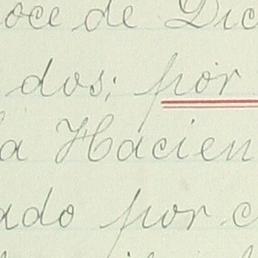 oce de Dic
dos; por
a Hacien
ado por c